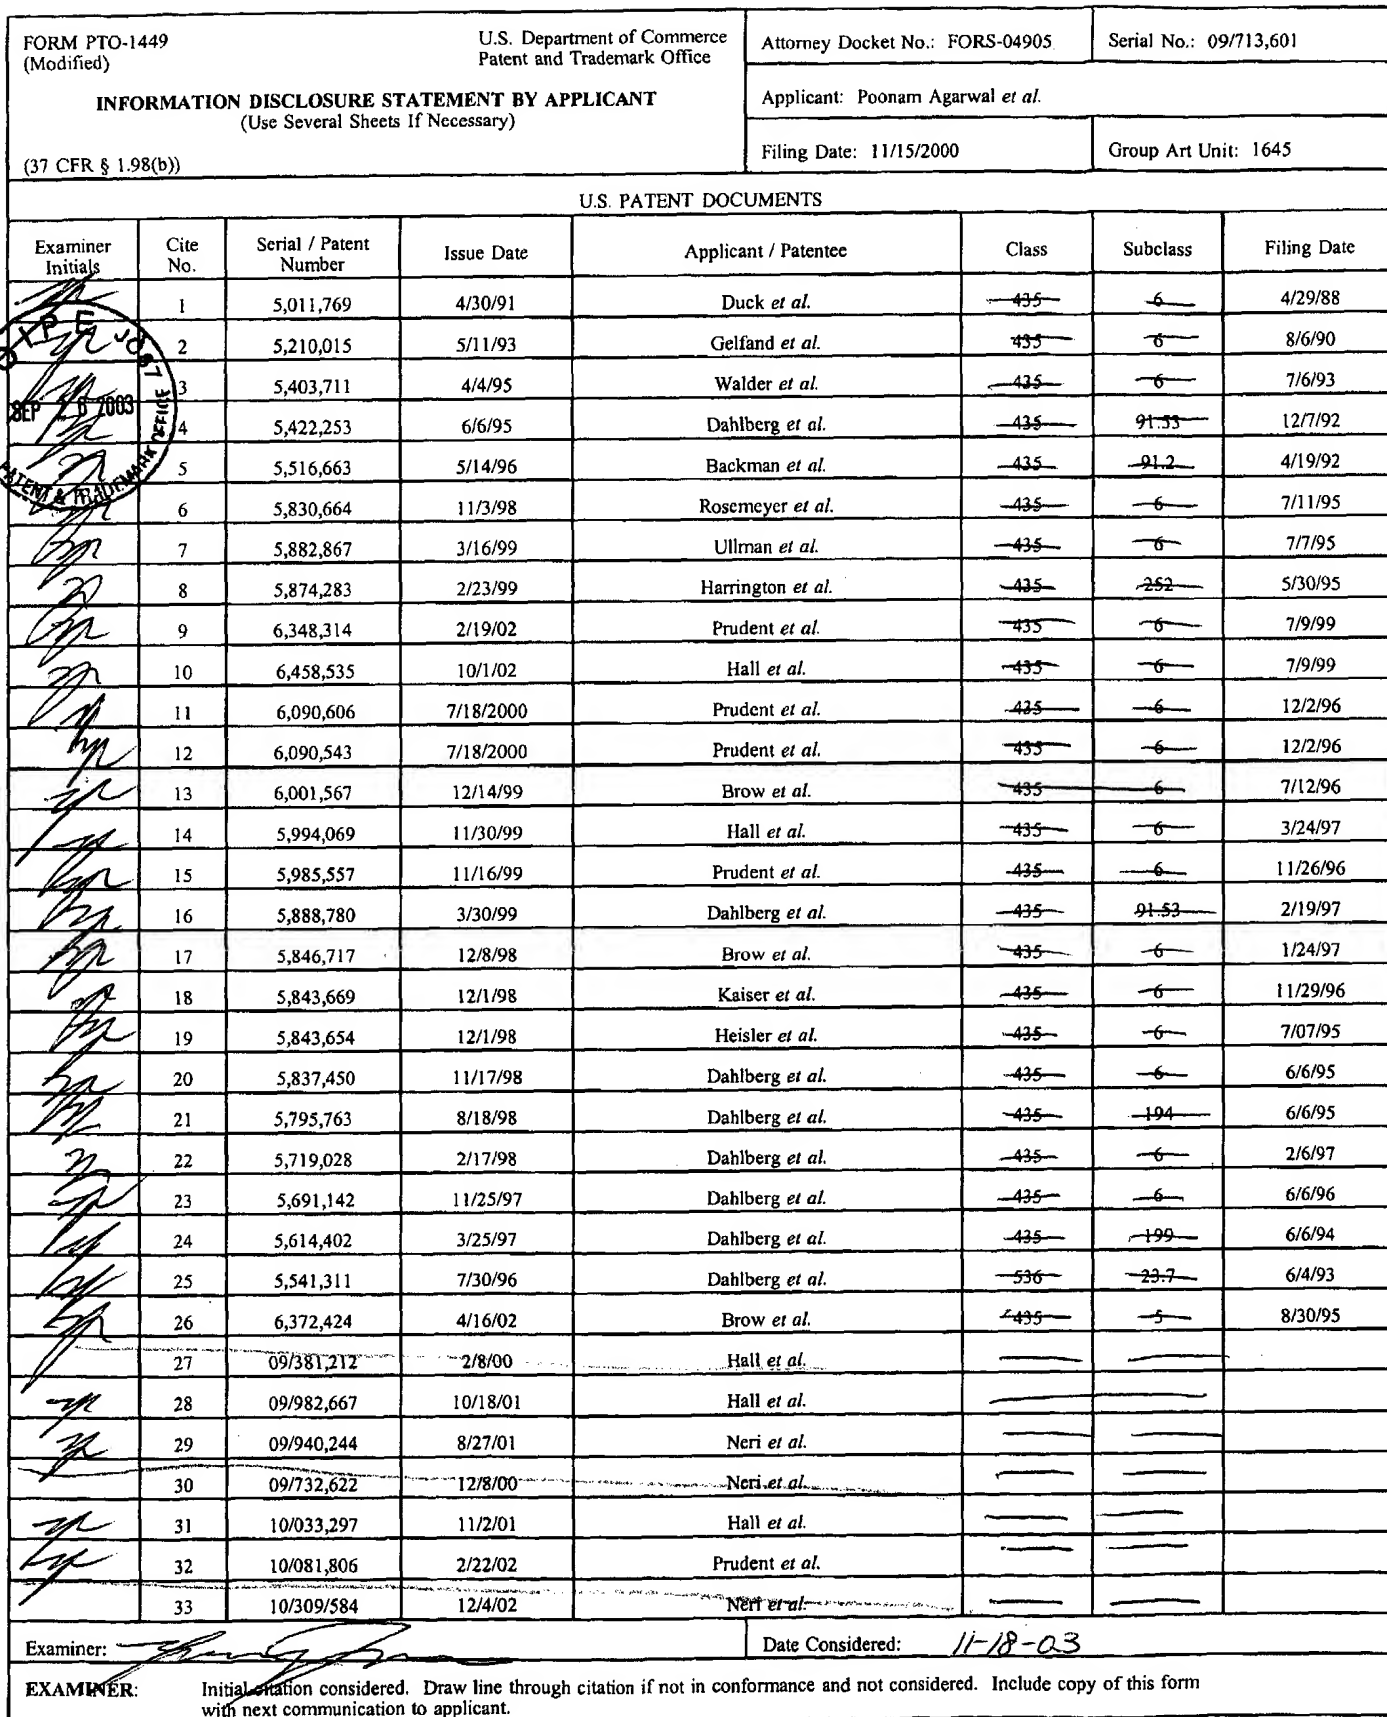 FORM PTO-1449 U.S. Department of Commerce Attorney Docket No.: FORS-04905 Serial No.: 09/713,601
(Modified) Patent and Trademark Office
INFORMATION DISCLOSURE STATEMENT BY APPLICANT
(Use Several Sheets If Necessary)
Applicant: Poonam Agarwal et al.
(37 CFR § 1.98(b)) Filing Date: 11/15/2000 Group Art Unit: 1645
U.S. PATENT DOCUMENTS
Examiner Initials Cite No. Serial / Patent Number Issue Date Applicant / Patentee Class Subclass Filing Date
1 5,011,769 4/30/91 Duck et al. 435 6 4/29/88
2 5,210,015 5/11/93 Gelfand et al. 435 6 8/6/90
3 5,403,711 4/4/95 Walder et al. 435 6 7/6/93
4 5,422,253 6/6/95 Dahlberg et al. 435 91.53 12/7/92
5 5,516,663 5/14/96 Backman et al. 435 91.2 4/19/92
6 5,830,664 11/3/98 Rosemeyer et al. 435 6 7/11/95
7 5,882,867 3/16/99 Ullman et al. 435 6 7/7/95
8 5,874,283 2/23/99 Harrington et al. 435 252 5/30/95
9 6,348,314 2/19/02 Prudent et al. 435 6 7/9/99
10 6,458,535 10/1/02 Hall et al. 435 6 7/9/99
11 6,090,606 7/18/2000 Prudent et al. 435 6 12/2/96
12 6,090,543 7/18/2000 Prudent et al. 435 6 12/2/96
13 6,001,567 12/14/99 Brow et al. 435 6 7/12/96
14 5,994,069 11/30/99 Hall et al. 435 6 3/24/97
15 5,985,557 11/16/99 Prudent et al. 435 6 11/26/96
16 5,888,780 3/30/99 Dahlberg et al. 435 91.53 2/19/97
17 5,846,717 12/8/98 Brow et al. 435 6 1/24/97
18 5,843,669 12/1/98 Kaiser et al. 435 6 11/29/96
19 5,843,654 12/1/98 Heisler et al. 435 6 7/07/95
20 5,837,450 11/17/98 Dahlberg et al. 435 6 6/6/95
21 5,795,763 8/18/98 Dahlberg et al. 435 194 6/6/95
22 5,719,028 2/17/98 Dahlberg et al. 435 6 2/6/97
23 5,691,142 11/25/97 Dahlberg et al. 435 6 6/6/96
24 5,614,402 3/25/97 Dahlberg et al. 435 199 6/6/94
25 5,541,311 7/30/96 Dahlberg et al. 536 23.7 6/4/93
26 6,372,424 4/16/02 Brow et al. 435 5 8/30/95
27 09/381,212 2/8/00 Hall et al.
28 09/982,667 10/18/01 Hall et al.
29 09/940,244 8/27/01 Neri et al.
30 09/732,622 12/8/00 Neri et al.
31 10/033,297 11/2/01 Hall et al.
32 10/081,806 2/22/02 Prudent et al.
33 10/309/584 12/4/02 Neri et al.
OIPE JC87
SEP 26 2003
PATENT & TRADEMARK OFFICE
Examiner: Date Considered: 11-18-03
EXAMINER: Initial citation considered. Draw line through citation if not in conformance and not considered. Include copy of this form
with next communication to applicant.